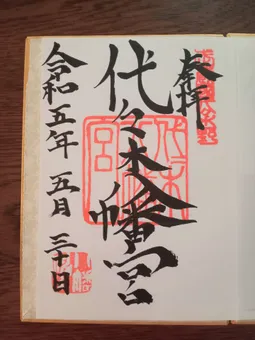 奉拝
代々木八幡宮
令和五年五月三十日